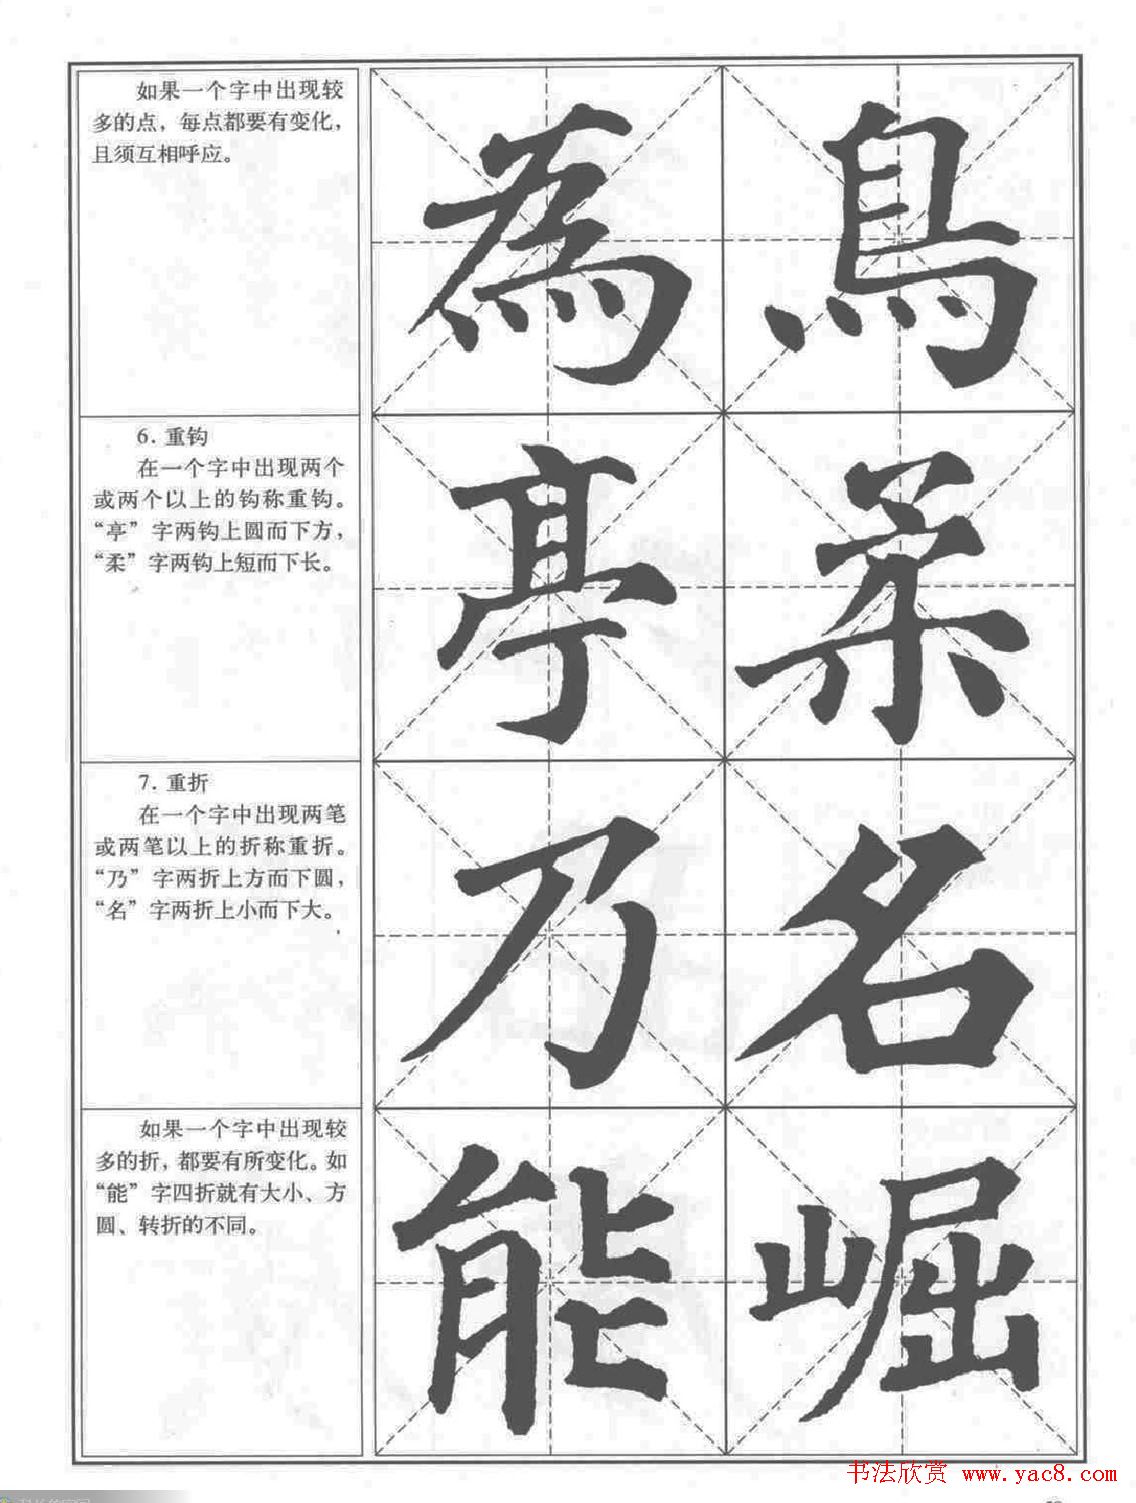 如果一个字中出现较
多的点，每点都要有变化，
且须互相呼应。
為
鳥
6. 重钩
在一个字中出现两个
或两个以上的钩称重钩。
“亭”字两钩上圆而下方，
“柔”字两钩上短而下长。
亭
柔
7. 重折
在一个字中出现两笔
或两笔以上的折称重折。
“乃”字两折上方而下圆，
“名”字两折上小而下大。
乃
名
如果一个字中出现较
多的折，都要有所变化。如
“能”字四折就有大小、方
圆、转折的不同。
能
崛
书法欣赏 www.yac8.com